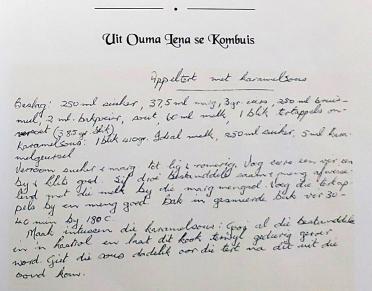 Uit Ouma Lena se Kombuis
Appeltert met karamelsous
Beslag: 250 ml suiker, 37,5 ml marg, 3 gr. eiers, 250 ml bruis-
meel, 2 ml. bakpoeier, sout, 60 ml melk, 1 blik tertappels on-
versoet (385 gr. blik)
Karamelsous: 1 blik 410gr. Ideal melk, 250 ml suiker, 5 ml kara-
melgeursel
Verroom suiker + marg tot lig + romerig. Voeg eiers een vir een
by + klits goed. Sif droë bestanddele saam + meng afwisse-
lend met die melk by die marg mengsel. Voeg die tertap-
pels by en meng goed. Bak in gesmeerde bak vir 30-
40 min by 180°C.
Maak intussen die karamelsous: Gooi al die bestanddele
in 'n kastrol en laat dit kook terwyl gedurig geroer
word. Giet die sous dadelik oor die tert na dit uit die
oond kom.